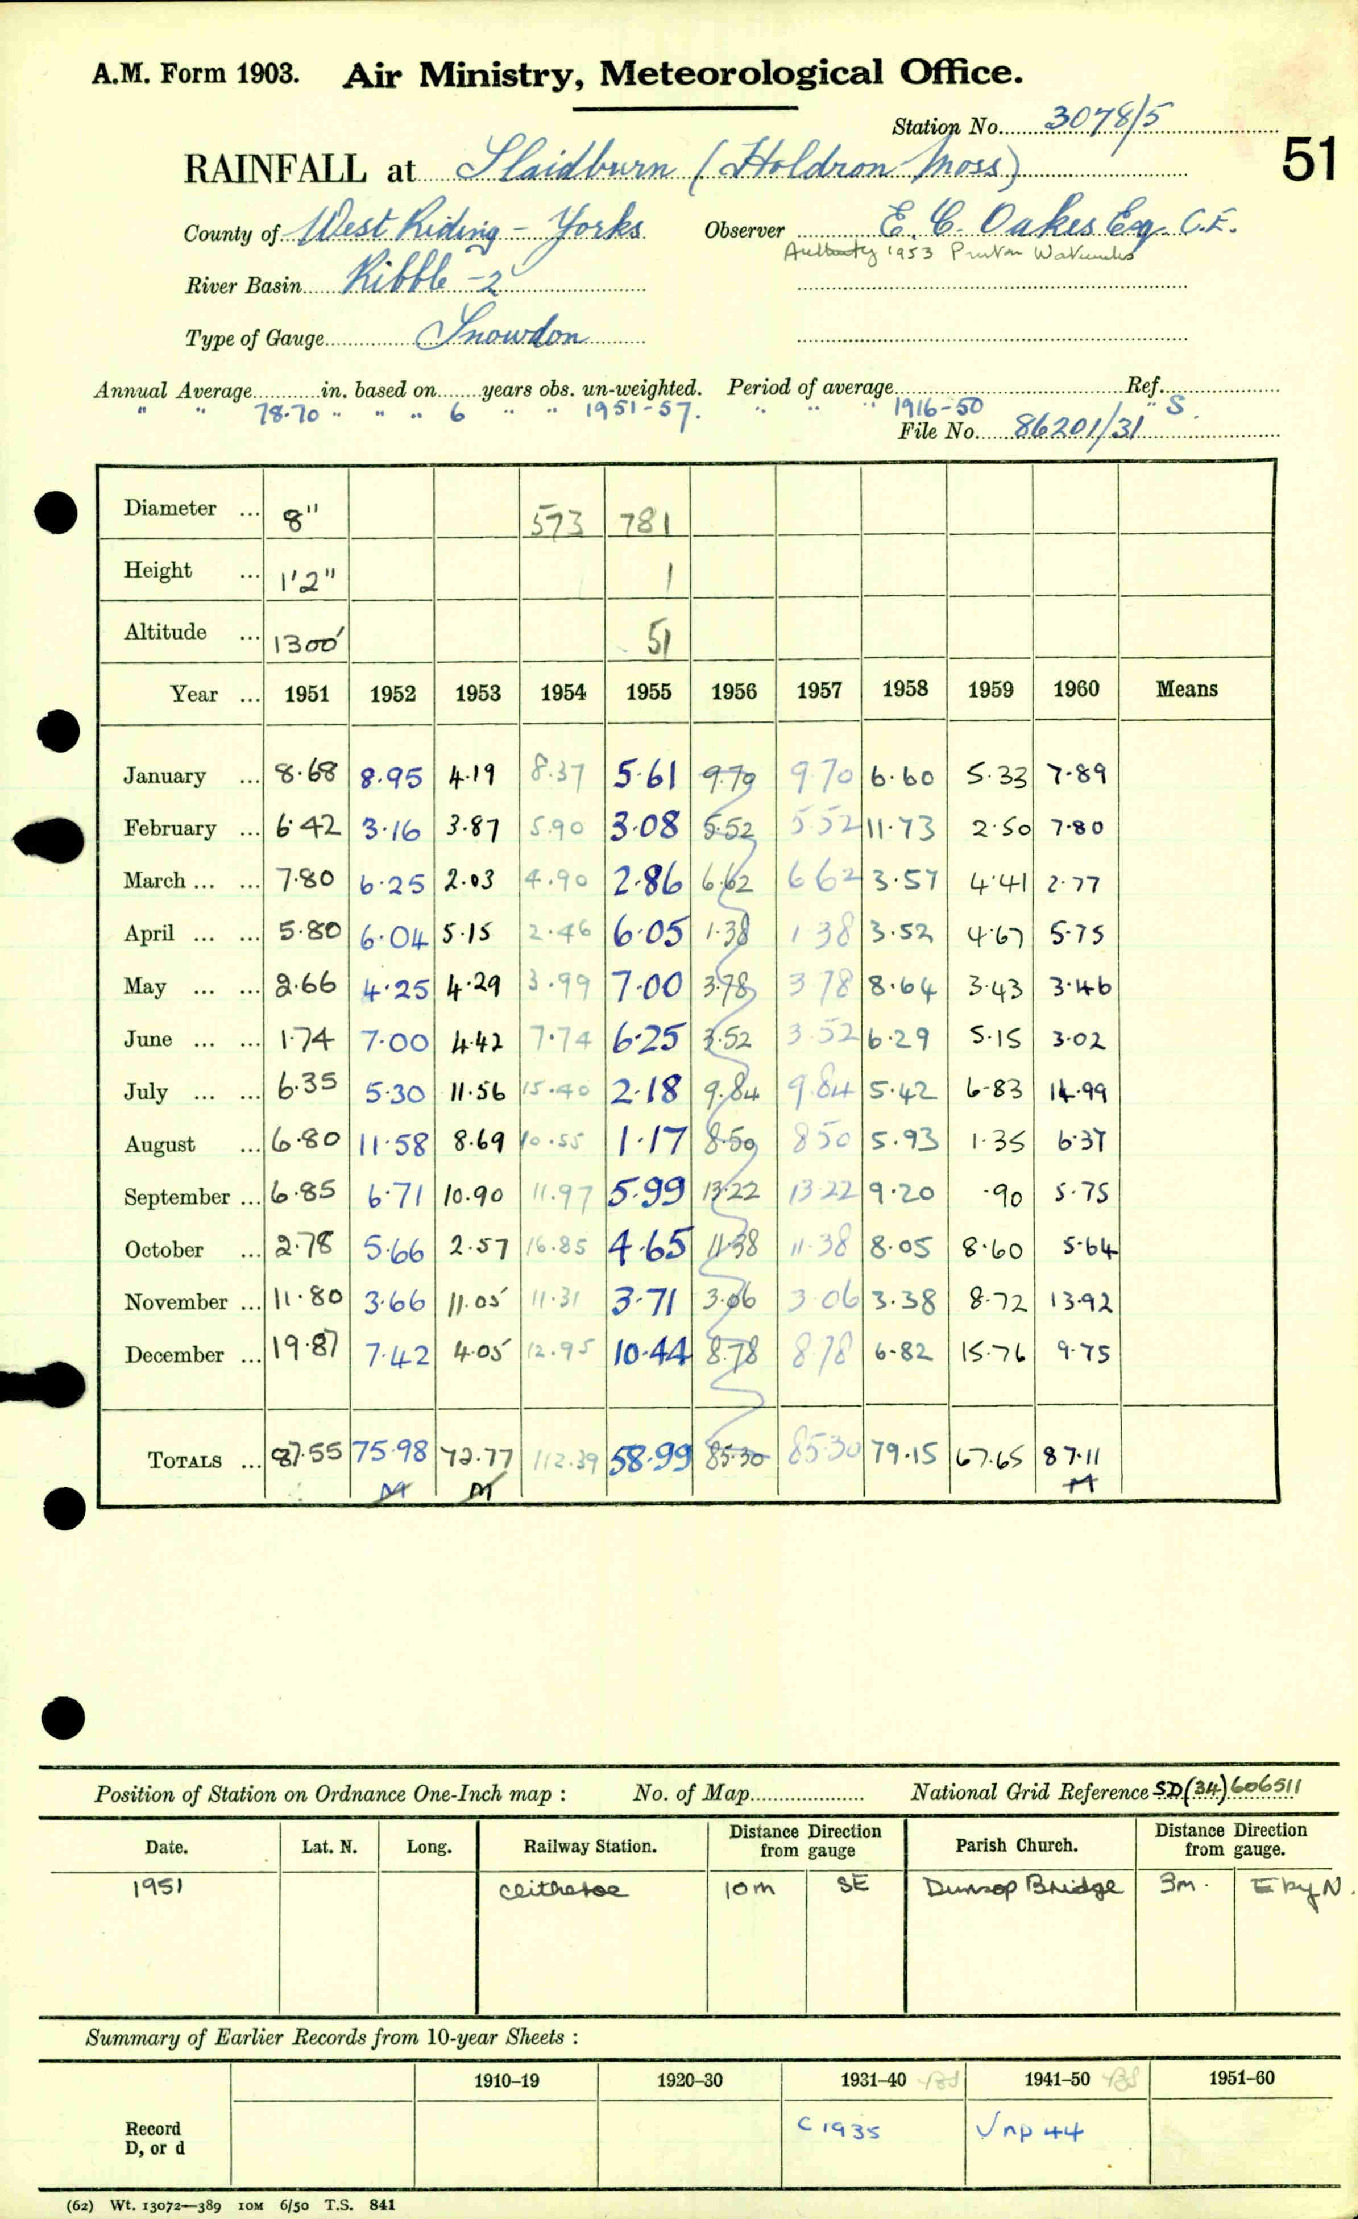 A.M. Form 1903. Air Ministry, Meteorological Office.
Station No. 3078/5
51
RAINFALL at Slaidburn (Holdron Moss)
County of West Riding - Yorks Observer E. C. Oakes Esq. C.E.
Authority 1953 Preston Waterworks
River Basin Ribble -2
Type of Gauge Snowdon
Annual Average in. based on years obs. un-weighted. Period of average Ref.
" " 78.70 " " " 6 " " 1951-57. " " " 1916-50 " S.
File No. 86201/31
Diameter ... 8" 573 781
Height ... 1'2" 1
Altitude ... 1300' 51
Year ... 1951 1952 1953 1954 1955 1956 1957 1958 1959 1960 Means
January ... 8.68 8.95 4.19 8.37 5.61 9.70 9.70 6.60 5.33 7.89
February ... 6.42 3.16 3.87 5.90 3.08 5.52 5.52 11.73 2.50 7.80
March ... ... 7.80 6.25 2.03 4.90 2.86 6.62 6.62 3.57 4.41 2.77
April ... ... 5.80 6.04 5.15 2.46 6.05 1.38 1.38 3.52 4.67 5.75
May ... ... 2.66 4.25 4.29 3.99 7.00 3.78 3.78 8.64 3.43 3.46
June ... ... 1.74 7.00 4.42 7.74 6.25 3.52 3.52 6.29 5.15 3.02
July ... ... 6.35 5.30 11.56 15.40 2.18 9.84 9.84 5.42 6.83 14.99
August ... 6.80 11.58 8.69 10.55 1.17 8.50 8.50 5.93 1.35 6.37
September ... 6.85 6.71 10.90 11.97 5.99 13.22 13.22 9.20 .90 5.75
October ... 2.78 5.66 2.57 16.85 4.65 11.38 11.38 8.05 8.60 5.64
November ... 11.80 3.66 11.05 11.31 3.71 3.06 3.06 3.38 8.72 13.92
December ... 19.87 7.42 4.05 12.95 10.44 8.78 8.78 6.82 15.76 9.75
TOTALS ... 87.55 75.98 72.77 112.39 58.99 85.30 85.30 79.15 67.65 87.11
M M M
Position of Station on Ordnance One-Inch map : No. of Map National Grid Reference SD(34)606511
Date. Lat. N. Long. Railway Station. Distance Direction from gauge Parish Church. Distance Direction from gauge.
1951 Clitheroe 10m SE Dunsop Bridge 3m. E by N.
Summary of Earlier Records from 10-year Sheets :
1910–19 1920–30 1931–40 1941–50 1951–60
Record D, or d C 1935 √ np 44
(62) Wt. 13072—389 10M 6/50 T.S. 841